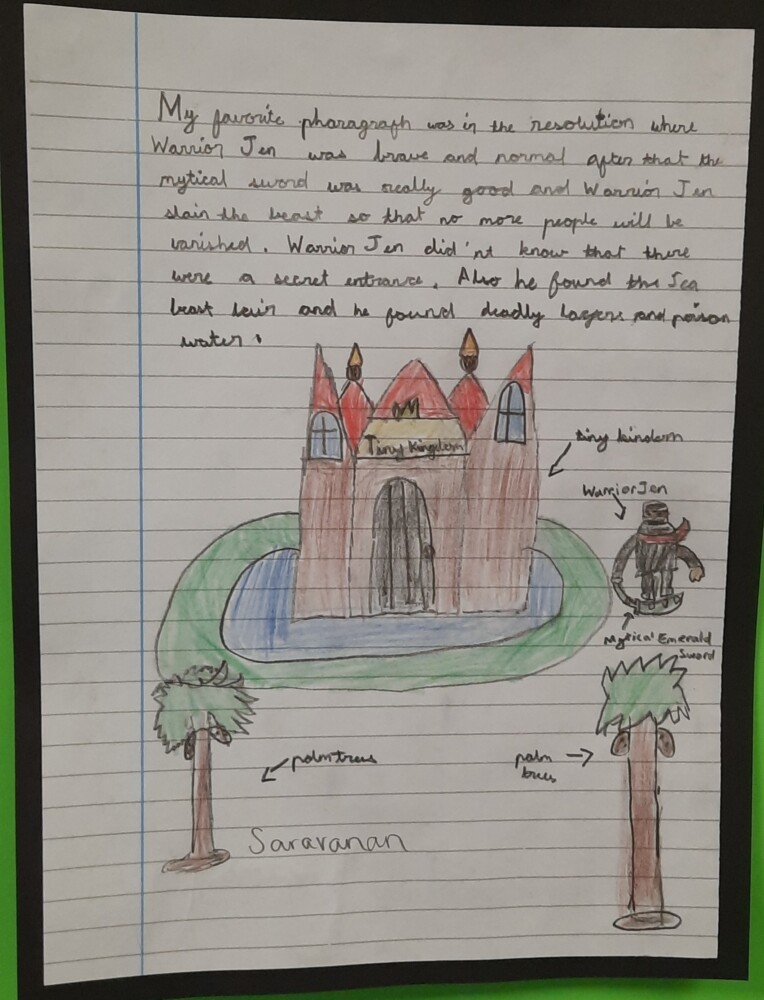 My favorite pharagraph was in the resolution where
Warrior Jen was brave and normal after that the
mytical sword was really good and Warrior Jen
slain the beast so that no more people will be
vanished. Warrior Jen did'nt know that there
were a secret entrance. Also he found the Sea
beast lair and he found deadly layers and poison
water.
Tiny Kingdom
tiny kindom
Warrior Jen
Mytical Emerald
Sword
palm trees
palm
trees
Saravanan